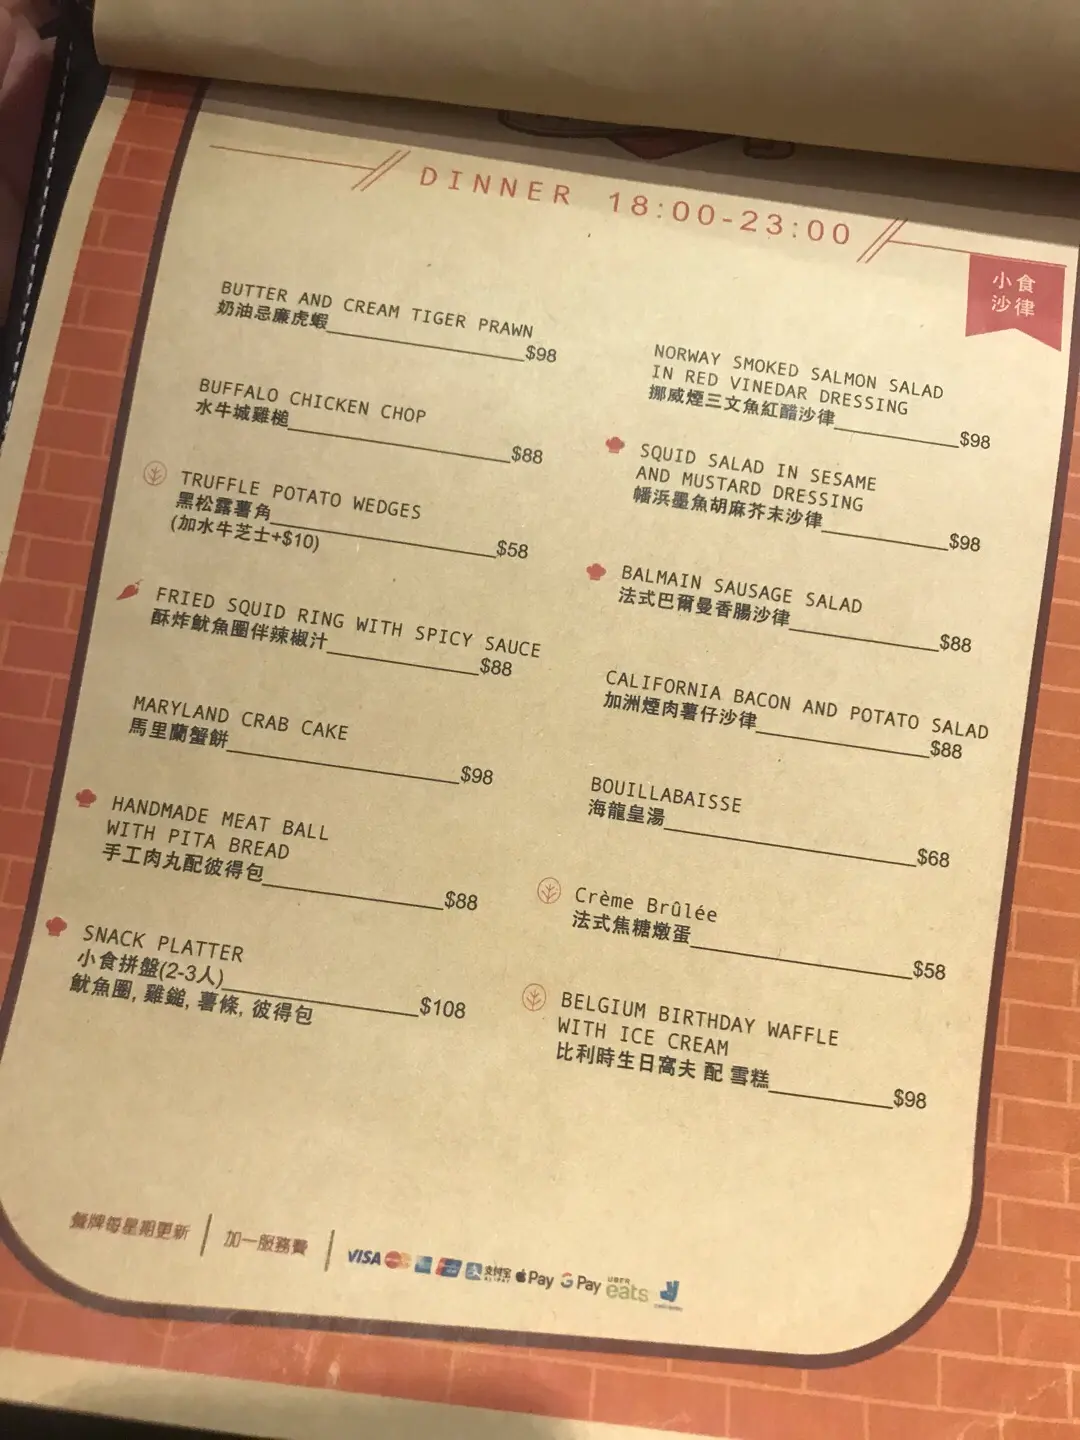 DINNER 18:00-23:00
小食
沙律
BUTTER AND CREAM TIGER PRAWN
奶油忌廉虎蝦 $98
BUFFALO CHICKEN CHOP
水牛城雞槌 $88
TRUFFLE POTATO WEDGES
黑松露薯角 $58
(加水牛芝士+$10)
FRIED SQUID RING WITH SPICY SAUCE
酥炸魷魚圈伴辣椒汁 $88
MARYLAND CRAB CAKE
馬里蘭蟹餅 $98
HANDMADE MEAT BALL
WITH PITA BREAD
手工肉丸配彼得包 $88
SNACK PLATTER
小食拼盤(2-3人) $108
魷魚圈, 雞鎚, 薯條, 彼得包
NORWAY SMOKED SALMON SALAD
IN RED VINEDAR DRESSING
挪威煙三文魚紅醋沙律 $98
SQUID SALAD IN SESAME
AND MUSTARD DRESSING
幡浜墨魚胡麻芥末沙律 $98
BALMAIN SAUSAGE SALAD
法式巴爾曼香腸沙律 $88
CALIFORNIA BACON AND POTATO SALAD
加洲煙肉薯仔沙律 $88
BOUILLABAISSE
海龍皇湯 $68
Crème Brûlée
法式焦糖燉蛋 $58
BELGIUM BIRTHDAY WAFFLE
WITH ICE CREAM
比利時生日窩夫 配 雪糕 $98
餐牌每星期更新 | 加一服務費 | VISA 支付宝 ALIPAY Pay G Pay UBER eats